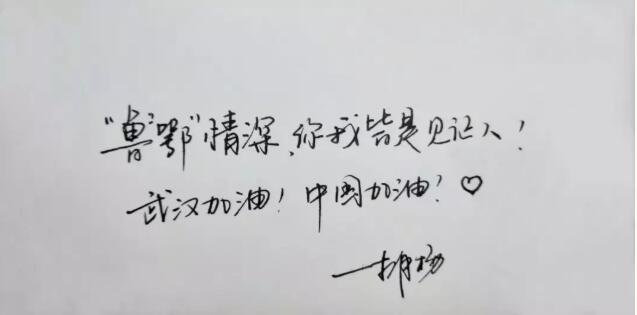 "鲁鄂"情深，你我皆是见证人！
武汉加油！中国加油！♡
—胡杨